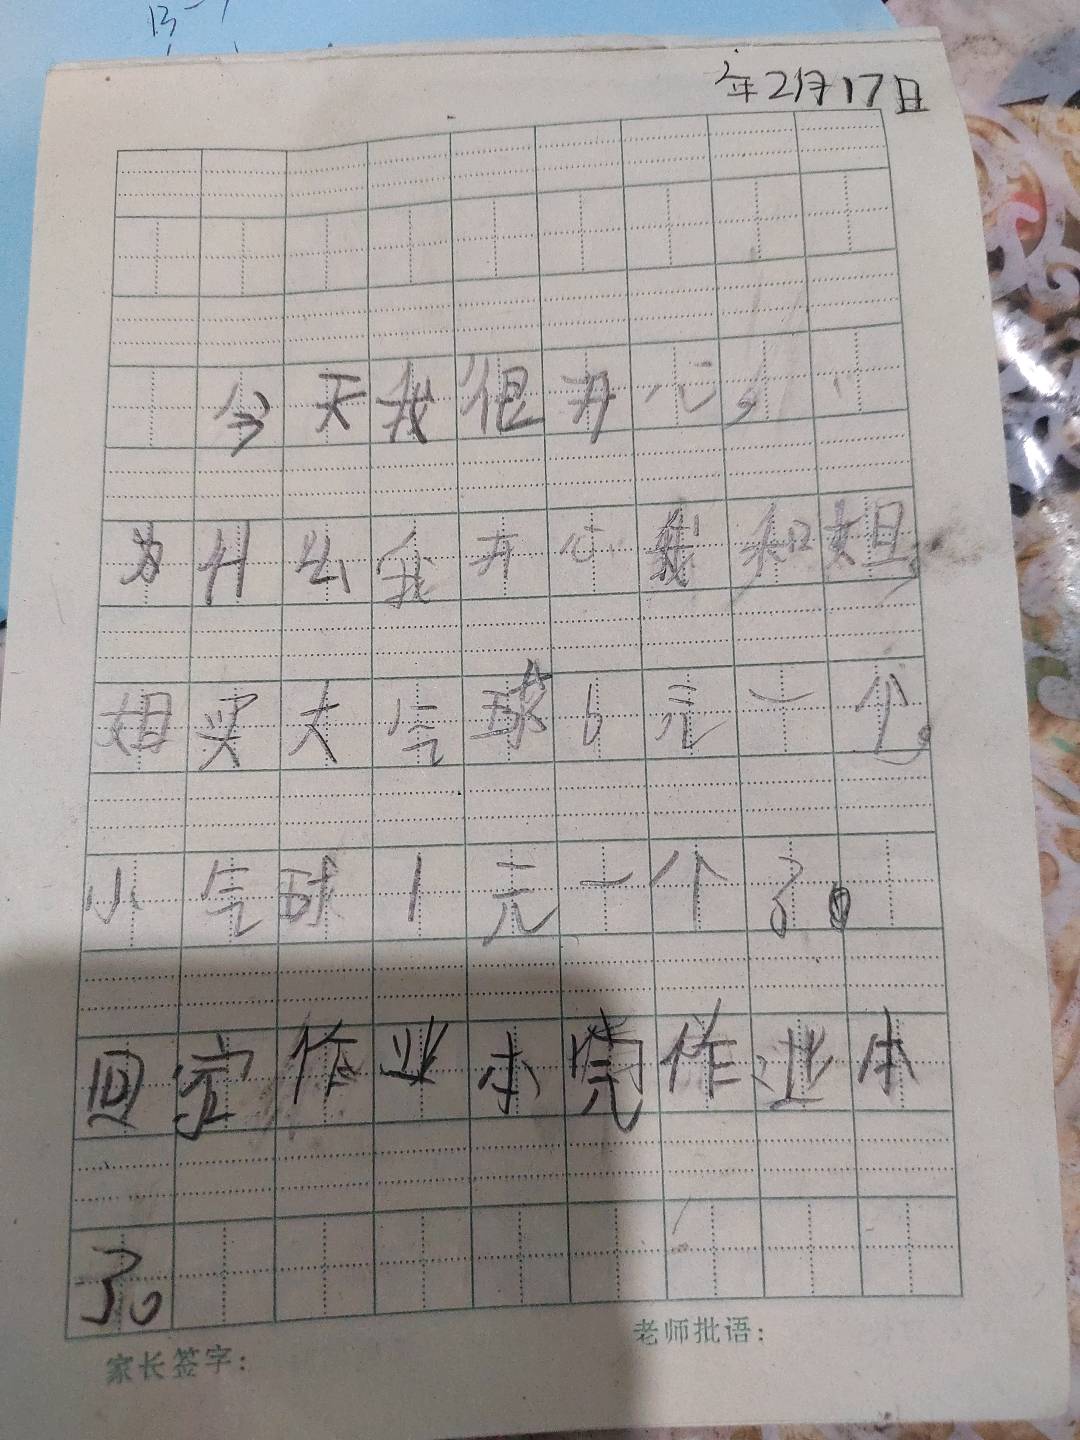 年2月17日
今天我很开心,
为什么我开心我和姐,
姐买大气球6元一个,
小气球1元一个了。
回家作业本完作业本
了。
老师批语:
家长签字: